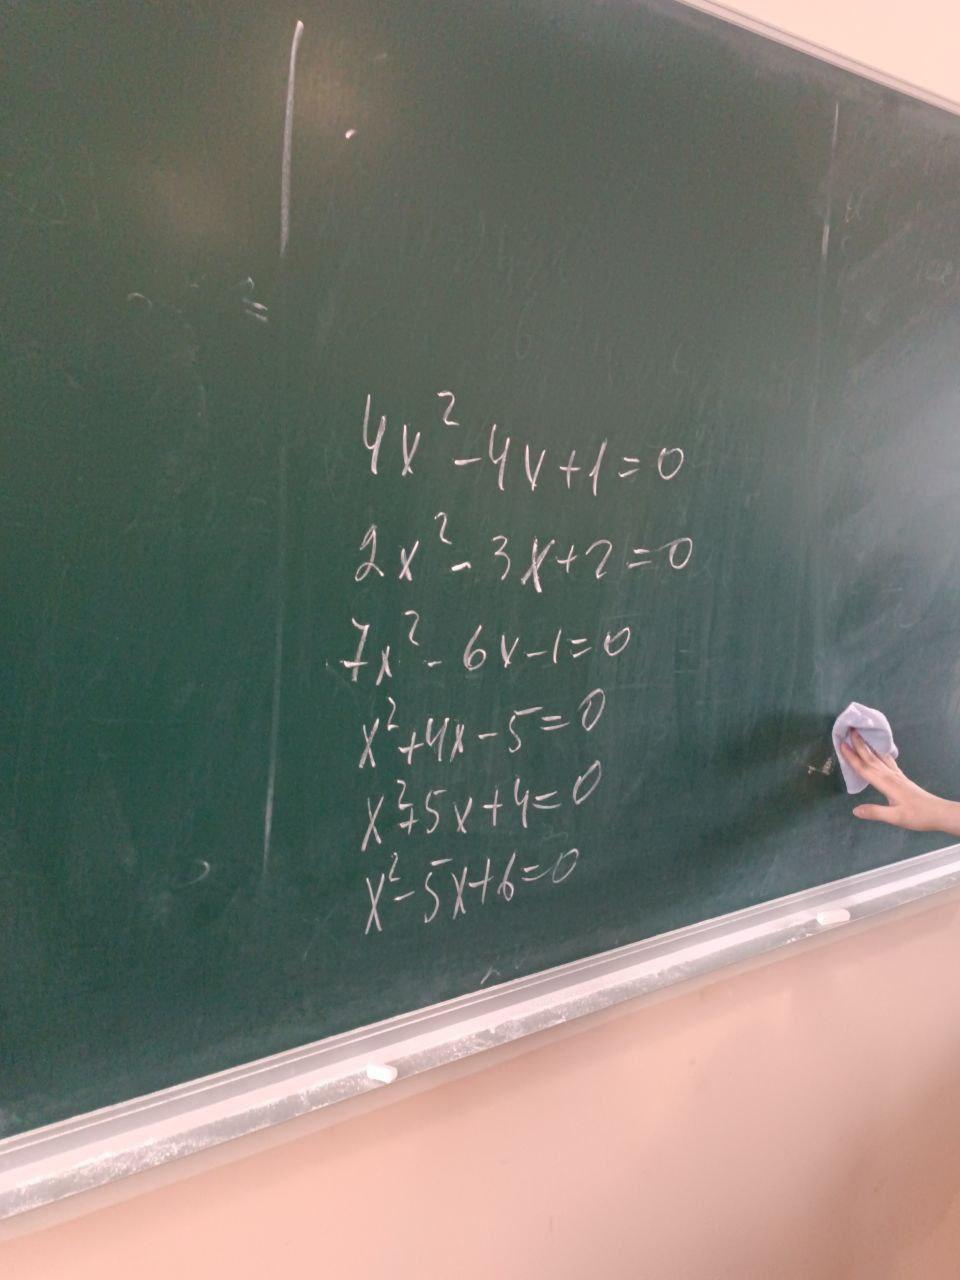 4x² - 4x + 1 = 0
2x² - 3x + 2 = 0
7x² - 6x - 1 = 0
x² + 4x - 5 = 0
x² + 5x + 4 = 0
x² - 5x + 6 = 0